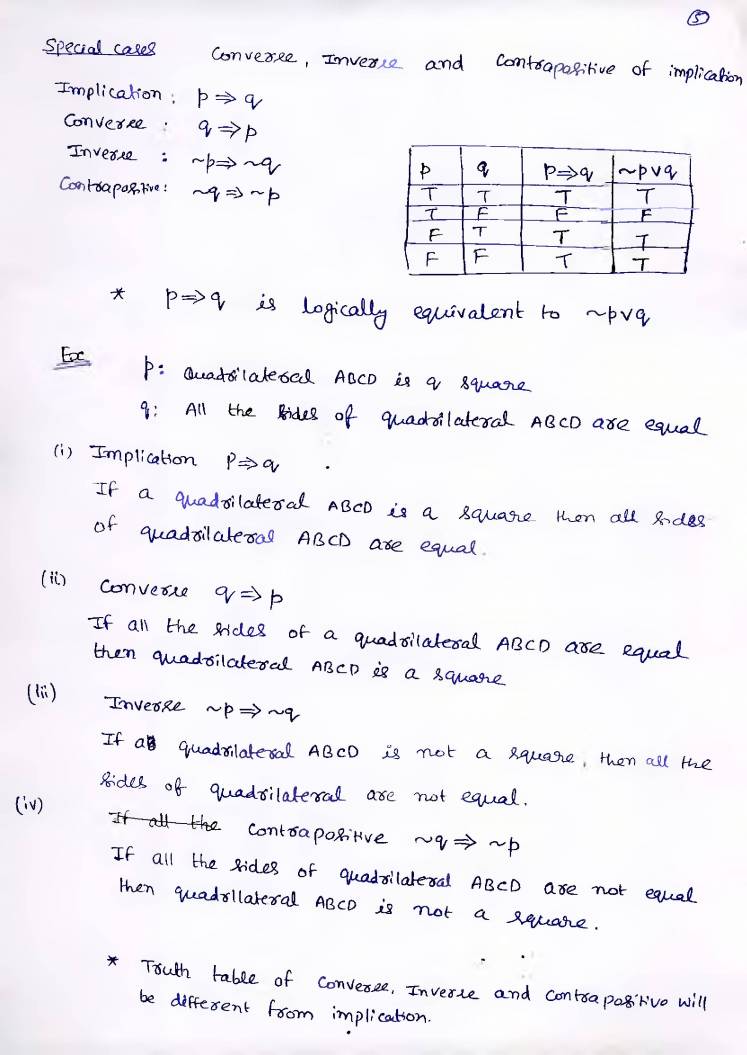 5
Special cases Converse, Inverse and Contrapositive of implication
Implication: p ⇒ q
Converse : q ⇒ p
Inverse : ~p ⇒ ~q
Contrapositive: ~q ⇒ ~p
p q p⇒q ~p∨q
T T T T
T F F F
F T T T
F F T T
* p ⇒ q is logically equivalent to ~p∨q
Ex
p: Quadrilateral ABCD is a square
q: All the sides of quadrilateral ABCD are equal
(i) Implication P ⇒ q .
If a quadrilateral ABCD is a square then all sides
of quadrilateral ABCD are equal.
(ii) Converse q ⇒ p
If all the sides of a quadrilateral ABCD are equal
then quadrilateral ABCD is a square
(iii) Inverse ~p ⇒ ~q
If a quadrilateral ABCD is not a square, then all the
sides of quadrilateral are not equal.
(iv) If all the Contrapositive ~q ⇒ ~p
If all the sides of quadrilateral ABCD are not equal
then quadrilateral ABCD is not a square.
* Truth table of Converse, Inverse and Contrapositive will
be different from implication.